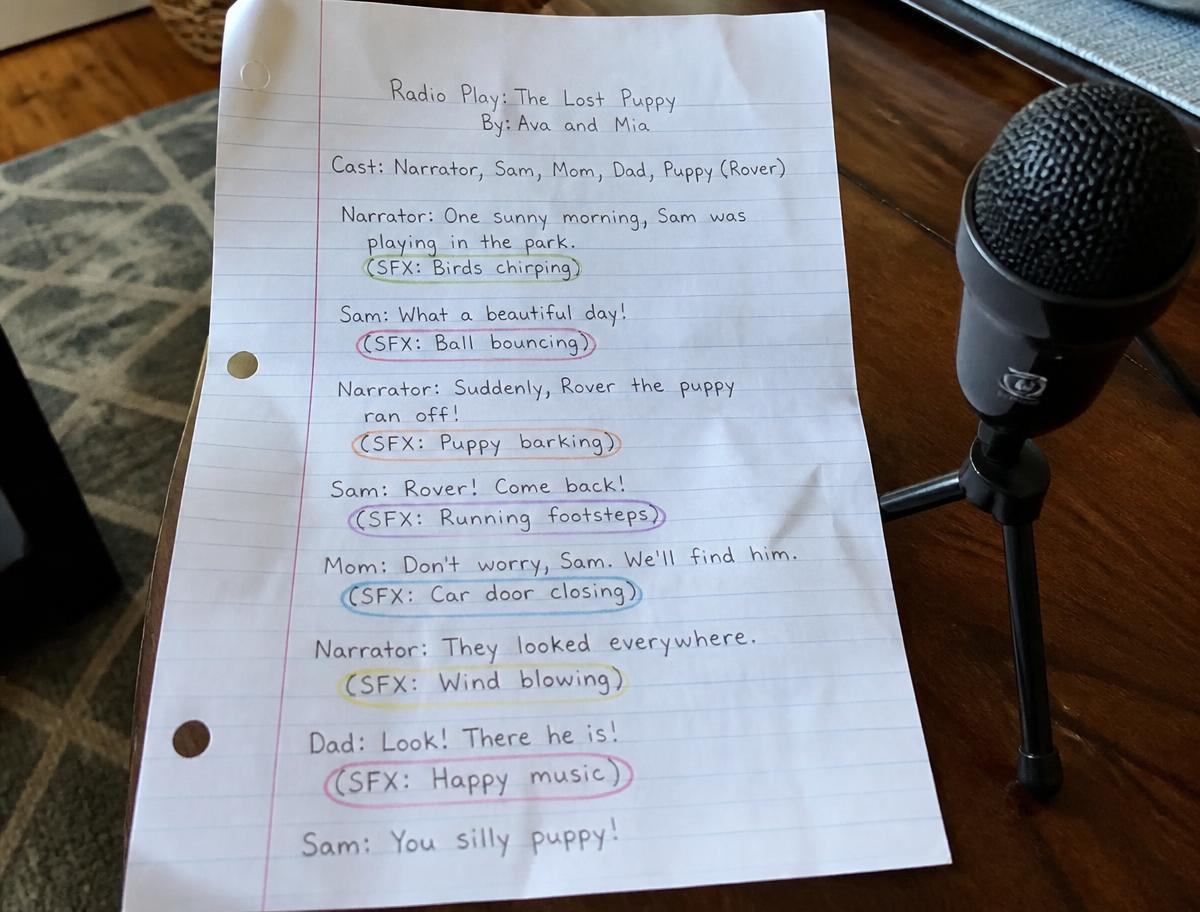 Radio Play: The Lost Puppy
By: Ava and Mia
Cast: Narrator, Sam, Mom, Dad, Puppy (Rover)
Narrator: One sunny morning, Sam was
playing in the park.
(SFX: Birds chirping)
Sam: What a beautiful day!
(SFX: Ball bouncing)
Narrator: Suddenly, Rover the puppy
ran off!
(SFX: Puppy barking)
Sam: Rover! Come back!
(SFX: Running footsteps)
Mom: Don't worry, Sam. We'll find him.
(SFX: Car door closing)
Narrator: They looked everywhere.
(SFX: Wind blowing)
Dad: Look! There he is!
(SFX: Happy music)
Sam: You silly puppy!